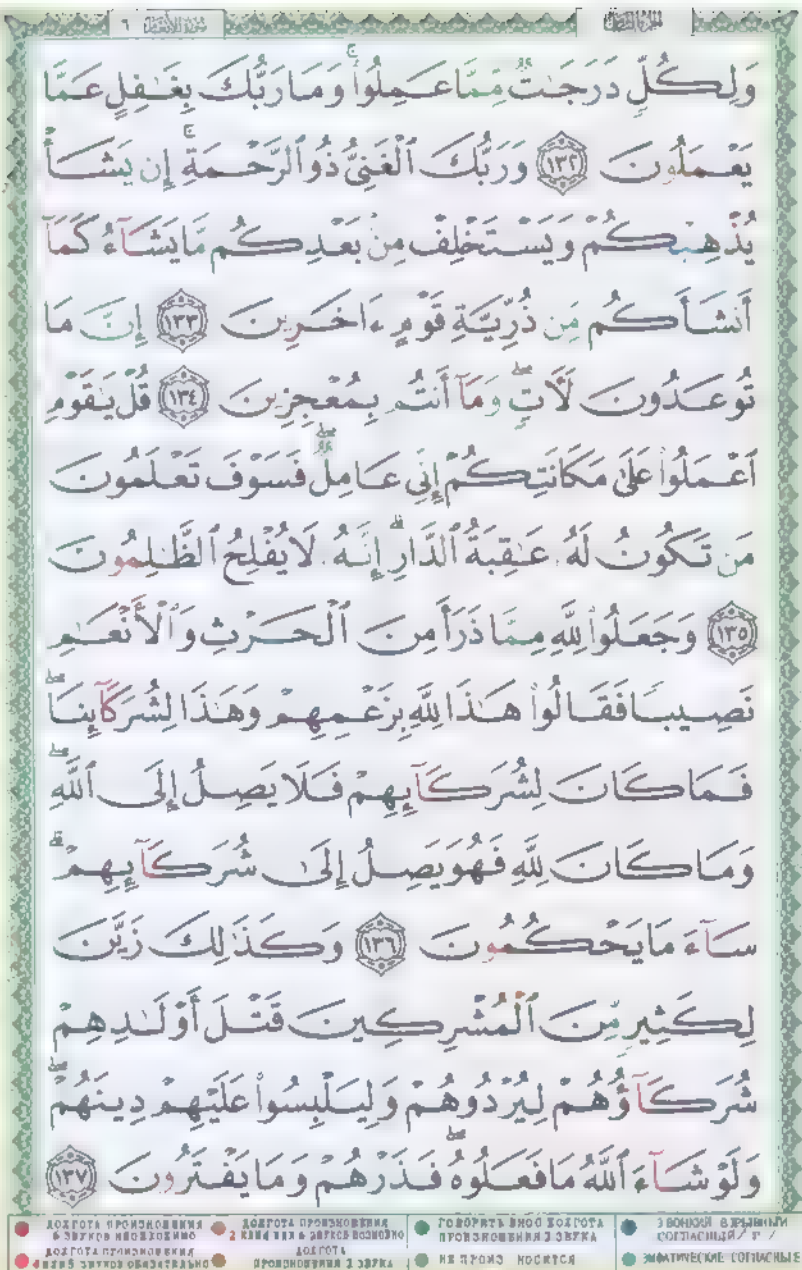 سُورَةُ الأَنْعَام ٦
وَلِكُلٍّ دَرَجَٰتٌ مِّمَّا عَمِلُوا۟ ۚ وَمَا رَبُّكَ بِغَٰفِلٍ عَمَّا
يَعْمَلُونَ ١٣٢ وَرَبُّكَ ٱلْغَنِىُّ ذُو ٱلرَّحْمَةِ ۚ إِن يَشَأْ
يُذْهِبْكُمْ وَيَسْتَخْلِفْ مِنۢ بَعْدِكُم مَّا يَشَآءُ كَمَآ
أَنشَأَكُم مِّن ذُرِّيَّةِ قَوْمٍ ءَاخَرِينَ ١٣٣ إِنَّ مَا
تُوعَدُونَ لَءَاتٍ ۖ وَمَآ أَنتُم بِمُعْجِزِينَ ١٣٤ قُلْ يَٰقَوْمِ
ٱعْمَلُوا۟ عَلَىٰ مَكَانَتِكُمْ إِنِّى عَامِلٌ ۖ فَسَوْفَ تَعْلَمُونَ
مَن تَكُونُ لَهُۥ عَٰقِبَةُ ٱلدَّارِ ۗ إِنَّهُۥ لَا يُفْلِحُ ٱلظَّٰلِمُونَ
١٣٥ وَجَعَلُوا۟ لِلَّهِ مِمَّا ذَرَأَ مِنَ ٱلْحَرْثِ وَٱلْأَنْعَٰمِ
نَصِيبًا فَقَالُوا۟ هَٰذَا لِلَّهِ بِزَعْمِهِمْ وَهَٰذَا لِشُرَكَآئِنَا ۖ
فَمَا كَانَ لِشُرَكَآئِهِمْ فَلَا يَصِلُ إِلَى ٱللَّهِ ۖ
وَمَا كَانَ لِلَّهِ فَهُوَ يَصِلُ إِلَىٰ شُرَكَآئِهِمْ ۗ
سَآءَ مَا يَحْكُمُونَ ١٣٦ وَكَذَٰلِكَ زَيَّنَ
لِكَثِيرٍ مِّنَ ٱلْمُشْرِكِينَ قَتْلَ أَوْلَٰدِهِمْ
شُرَكَآؤُهُمْ لِيُرْدُوهُمْ وَلِيَلْبِسُوا۟ عَلَيْهِمْ دِينَهُمْ ۖ
وَلَوْ شَآءَ ٱللَّهُ مَا فَعَلُوهُ ۖ فَذَرْهُمْ وَمَا يَفْتَرُونَ ١٣٧
ДОЛГОТА ПРОИЗНОШЕНИЯ 6 ЗВУКОВ НЕОБХОДИМО
ДОЛГОТА ПРОИЗНОШЕНИЯ 2 ИЛИ 4 ИЛИ 6 ЗВУКОВ ВОЗМОЖНО
ГОВОРИТЬ В НОС ДОЛГОТА ПРОИЗНОШЕНИЯ 2 ЗВУКА
ЗВОНКИЙ ВЗРЫВНЫЙ СОГЛАСНЫЙ / Г /
ДОЛГОТА ПРОИЗНОШЕНИЯ 4 ИЛИ 5 ЗВУКОВ ОБЯЗАТЕЛЬНО
ДОЛГОТА ПРОИЗНОШЕНИЯ 2 ЗВУКА
НЕ ПРОИЗНОСИТСЯ
ЭМФАТИЧЕСКИЕ СОГЛАСНЫЕ